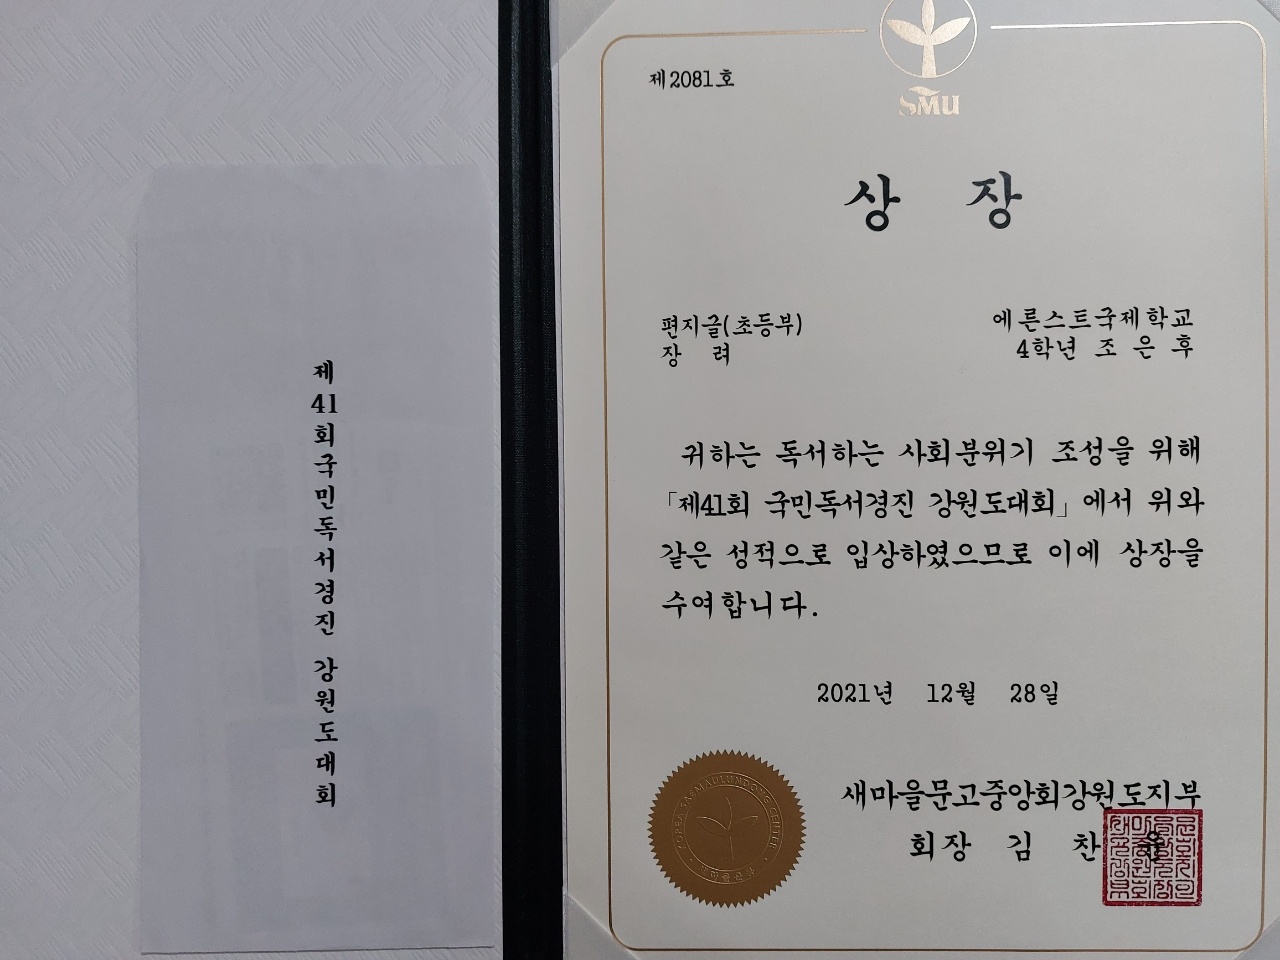 제41회국민독서경진 강원도대회
SMU
제2081호
상 장
편지글(초등부)
장 려
에른스트국제학교
4학년 조 은 후
귀하는 독서하는 사회분위기 조성을 위해
「제41회 국민독서경진 강원도대회」에서 위와
같은 성적으로 입상하였으므로 이에 상장을
수여합니다.
2021년 12월 28일
KOREA SAEMAULUNDONG CENTER
새마을운동
새마을문고중앙회강원도지부
회장 김 찬